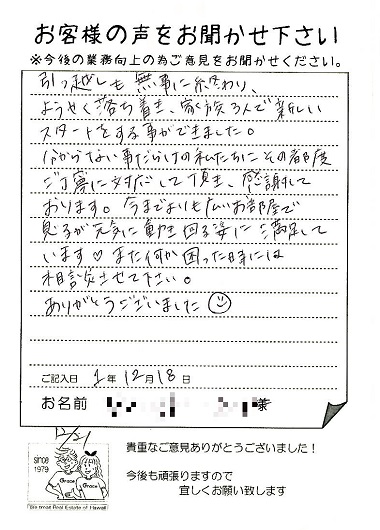 お客様の声をお聞かせ下さい
※今後の業務向上の為ご意見をお聞かせください。
引っ越しも無事に終わり、
ようやく落ち着き、家族3人で新しい
スタートをする事ができました。
分からない事だらけの私たちにその都度
ご丁寧に対応して頂き、感謝して
おります。今までよりも広いお部屋で
息子が元気に動き回る姿に満足して
います♡ また何か困った時には
相談させて下さい。
ありがとうございました☺
ご記入日 1年 12月 18日
お名前 様
12/21
since
1979
Grace Grace
Big small Real Estate of Hawaii
貴重なご意見ありがとうございました！
今後も頑張りますので
宜しくお願い致します